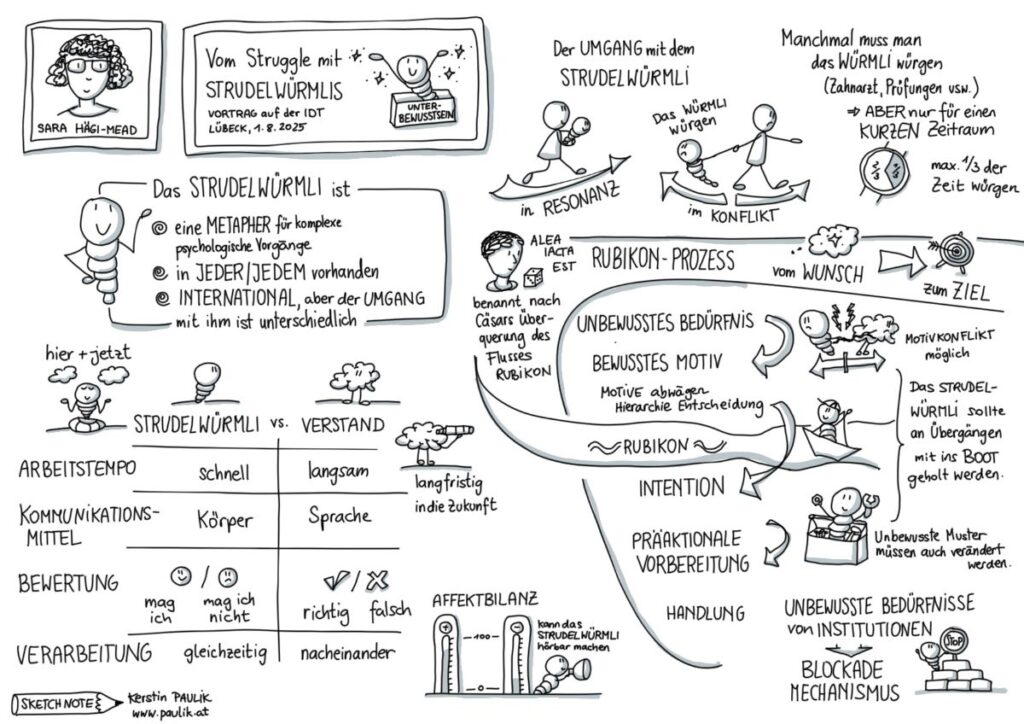 SARA HÄGI-MEAD
Vom Struggle mit
STRUDELWÜRMLIS
VORTRAG auf der IDT
LÜBECK, 1.8.2025
UNTER-
BEWUSSTSEIN
Das STRUDELWÜRMLI ist
eine METAPHER für komplexe
psychologische Vorgänge
in JEDER/JEDEM vorhanden
INTERNATIONAL, aber der UMGANG
mit ihm ist unterschiedlich
Der UMGANG mit dem
STRUDELWÜRMLI
in RESONANZ
Das WÜRMLI
würgen
im KONFLIKT
Manchmal muss man
das WÜRMLI würgen
(Zahnarzt, Prüfungen usw.)
⇒ ABER nur für einen
KURZEN Zeitraum
1/3
2/3
max. 1/3 der
Zeit würgen
hier + jetzt
STRUDELWÜRMLI vs. VERSTAND
langfristig
in die Zukunft
ARBEITSTEMPO schnell langsam
KOMMUNIKATIONS-
MITTEL Körper Sprache
BEWERTUNG
mag ich / mag ich nicht
richtig / falsch
VERARBEITUNG gleichzeitig nacheinander
SKETCHNOTE
Kerstin PAULIK
www.paulik.at
AFFEKTBILANZ
+
-
100
0
kann das
STRUDELWÜRMLI
hörbar machen
ALEA
IACTA
EST
benannt nach
Cäsars Über-
querung des
Flusses
RUBIKON
RUBIKON-PROZESS
vom WUNSCH
zum ZIEL
UNBEWUSSTES BEDÜRFNIS
BEWUSSTES MOTIV
MOTIVKONFLIKT
möglich
MOTIVE abwägen
Hierarchie Entscheidung
RUBIKON
Das STRUDEL-
WÜRMLI sollte
an Übergängen
mit ins BOOT
geholt werden.
INTENTION
PRÄAKTIONALE
VORBEREITUNG
Unbewusste Muster
müssen auch verändert
werden.
HANDLUNG
UNBEWUSSTE BEDÜRFNISSE
von INSTITUTIONEN
BLOCKADE
MECHANISMUS
STOP